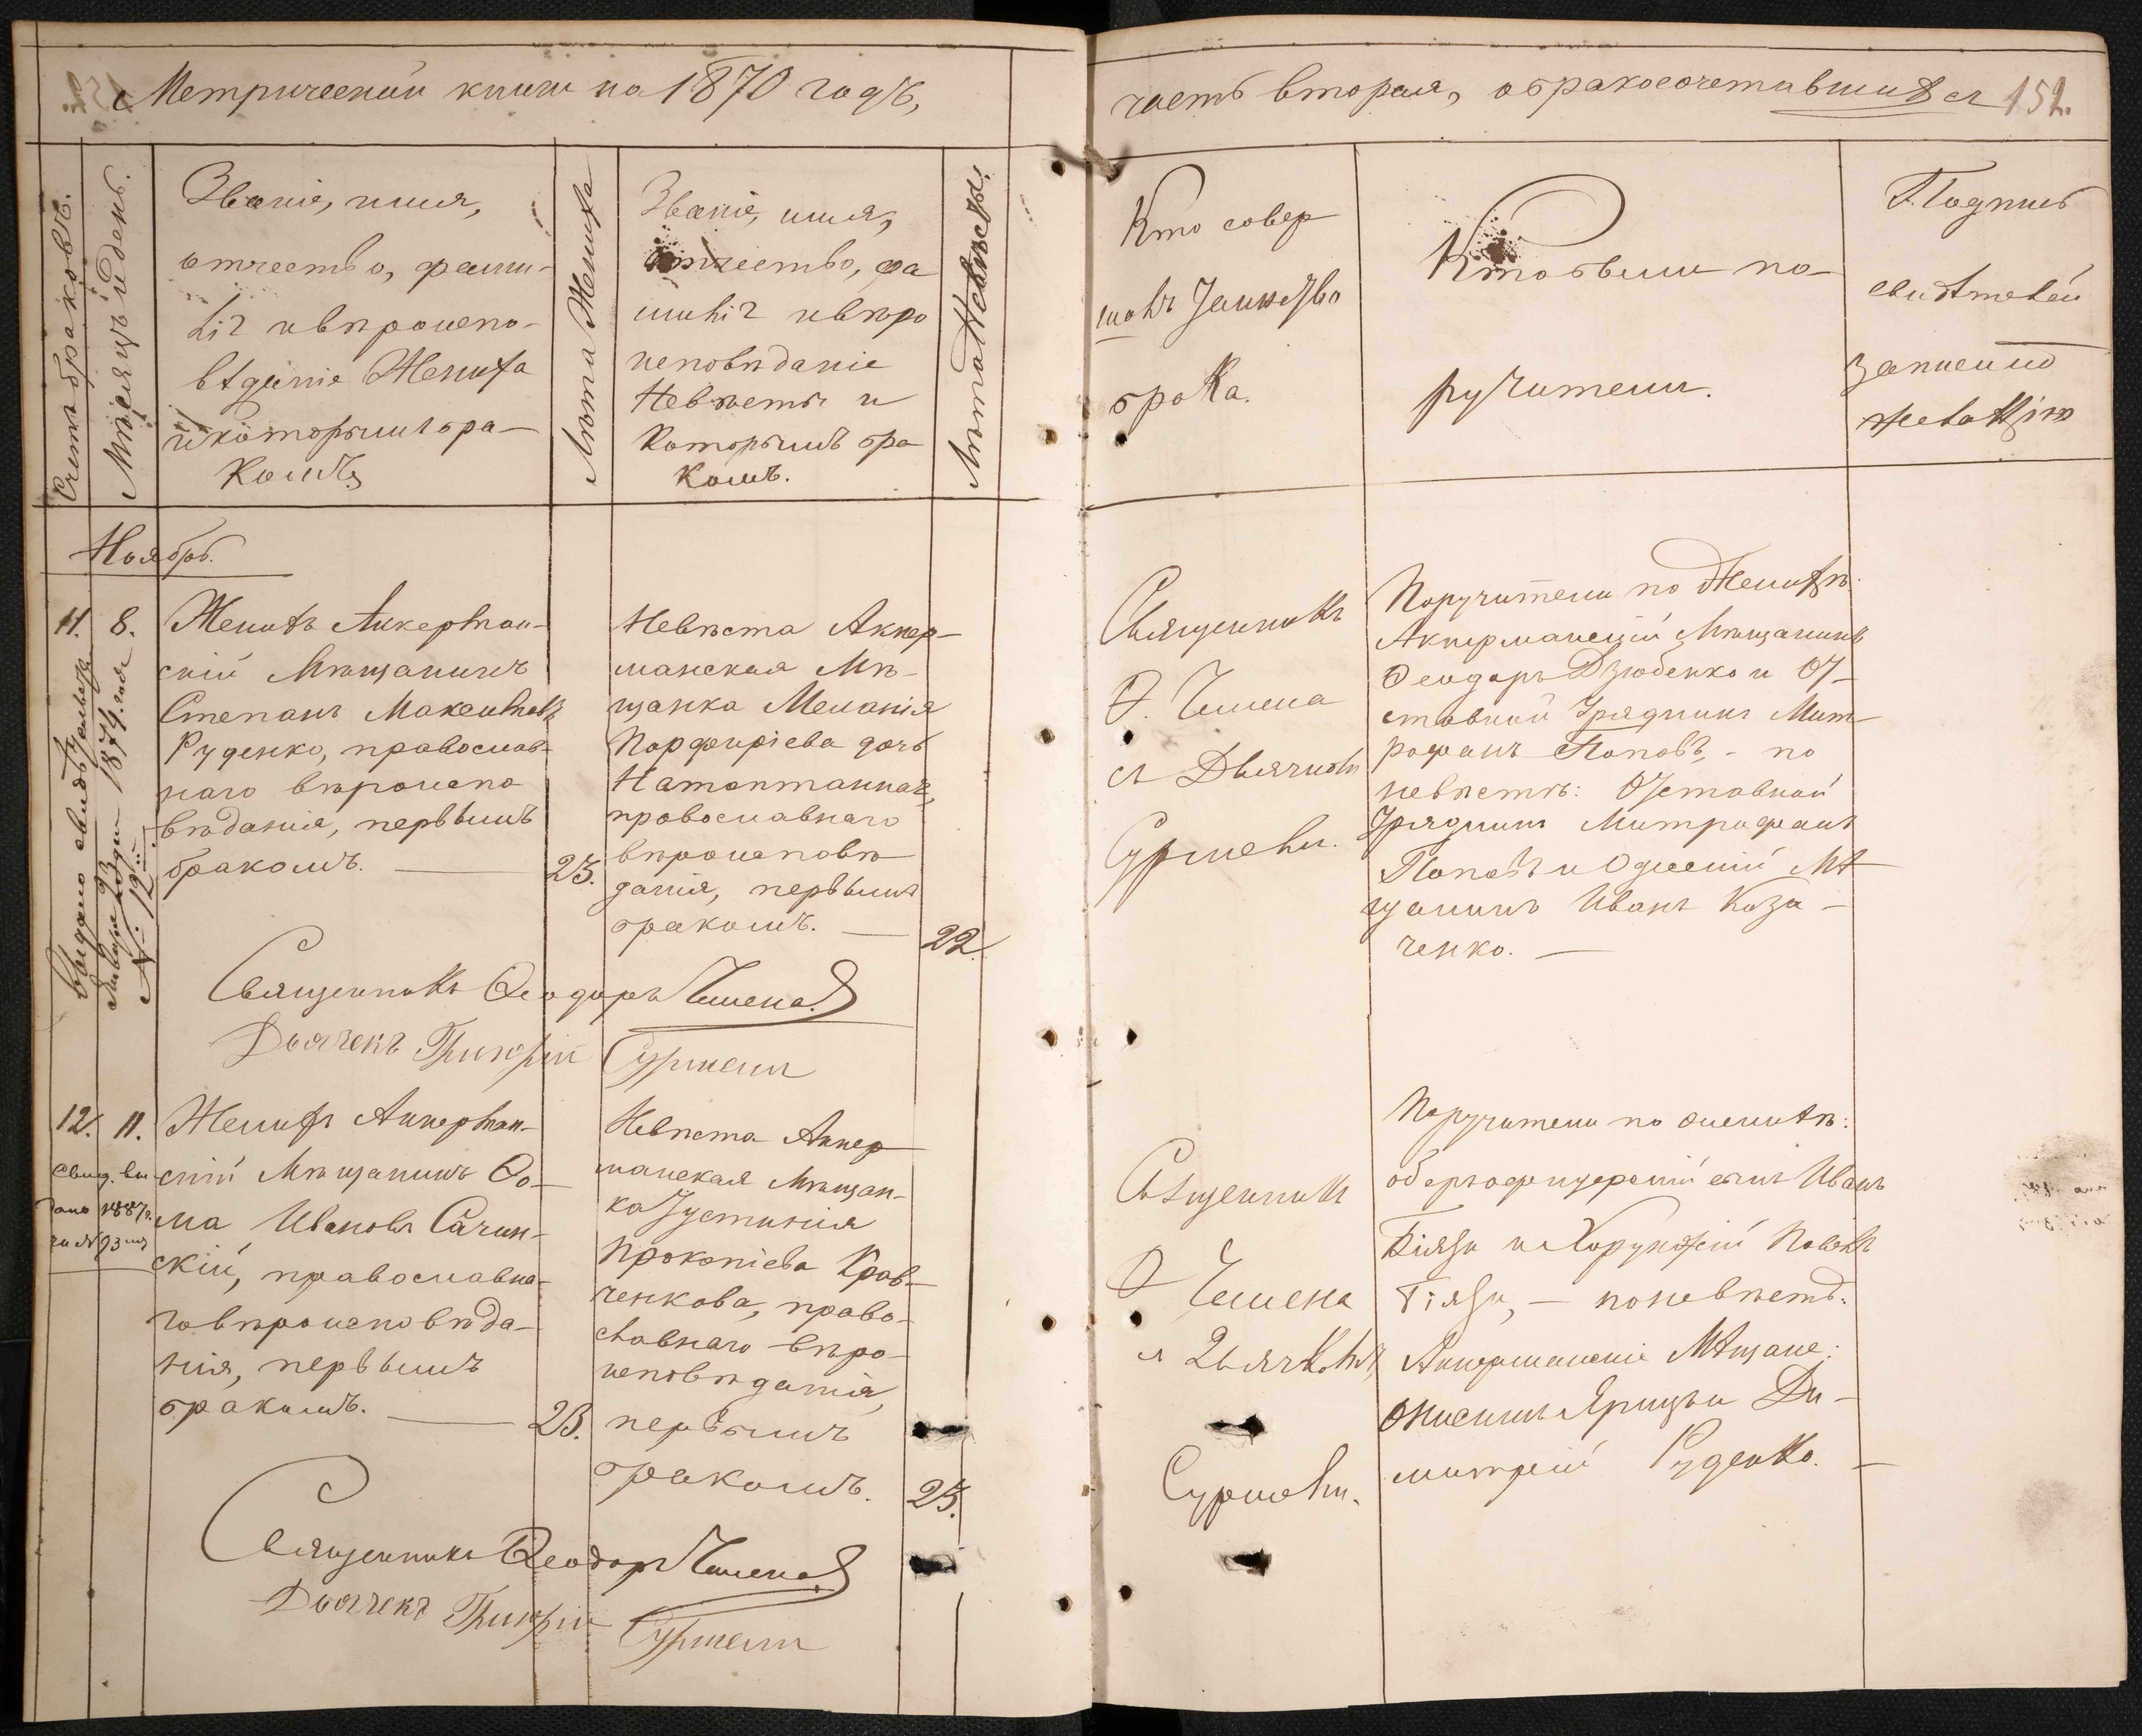 Метрической книги на 1870 годъ,
часть вторая, о бракосочетавшихся 152.
Счетъ браковъ.
Мѣсяцъ и день.
Званіе, имя,
отчество, фами-
лія и вѣроиспо-
вѣданіе Жениха
и которымъ бра-
комъ,
Лѣта Жениха
Званіе, имя,
отчество, фа
милія и вѣро
исповѣданіе
Невѣсты и
которымъ бра
комъ.
Лѣта Невѣсты.
Кто совер
шалъ Таинство
брака.
Кто были по-
ручители.
Подпись
свидѣтелей
записи по
желанію
Ноябрь.
11. 8.
Выдано свидѣтельство
Января 23 дня 1874 года
№ 12
Женихъ Аккерман-
скій Мѣщанинъ
Степанъ Максимовъ
Руденко, православ-
наго вѣроиспо
вѣданія, первымъ
бракомъ. — 23.
Невѣста Аккер-
манская Мѣ-
щанка Меланія
Порфиріева дочь
Натоптанная,
православнаго
вѣроисповѣ
данія, первымъ
бракомъ. — 22.
Священникъ Ѳеодоръ Чешена
Дьячекъ Григорій Сурженл
Священникъ
Ѳ. Чешена
съ Дьячкомъ
Поручители по Женихѣ:
Аккерманскій Мѣщанинъ
Ѳеодоръ Дзюбенко и От-
ставной Урядникъ Мит-
рофанъ Поповъ, - по
невѣстѣ: Отставной
Урядникъ Митрофанъ
Поповъ и Одесскій Мѣ
щанинъ Иванъ Коза-
ченко. —
12. 11.
Свид. вы
дано 1887 г.
за № 93
Женихъ Аккерман-
скій Мѣщанинъ Ѳо-
ма Ивановъ Сачин-
скій, православна-
го вѣроисповѣда-
нія, первымъ
бракомъ. — 23.
Невѣста Аккер
манская Мѣщан-
ка Іустинія
Прокопіева Крав-
ченкова, право-
славнаго вѣро-
исповѣданія,
первымъ
бракомъ. 23.
Священникъ Ѳеодоръ Чешена
Дьячекъ Григорій
Священникъ
Ѳ Чешена
и Дьячкомъ
Поручители по женихѣ:
оберъ-офицерскій сынъ Иванъ
и Хорунжій Павелъ
— по невѣстѣ:
Аккерманскіе Мѣщане:
Ди-
митрій Руденко. —